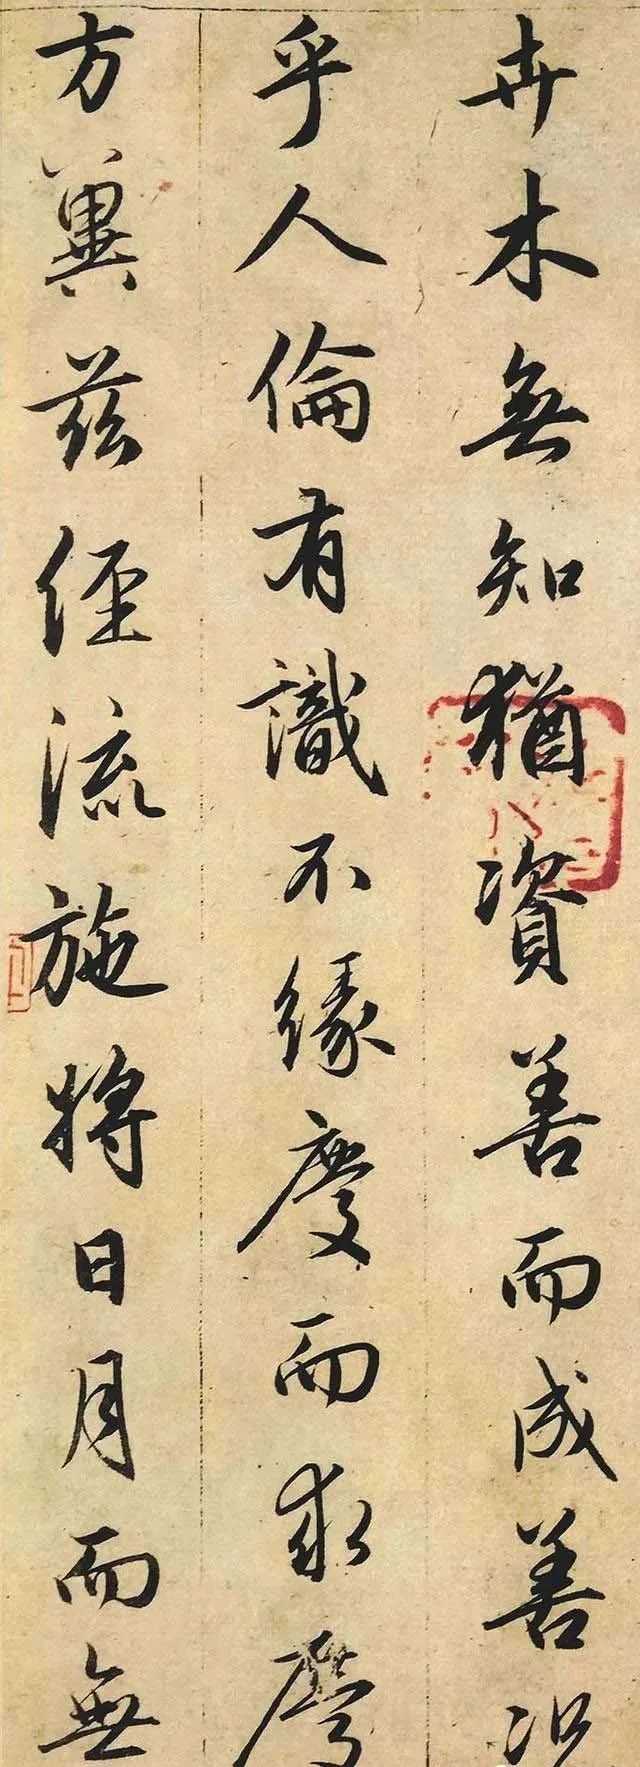 卉木無知猶資善而成善況
乎人倫有識不緣慶而求慶
方冀茲經流施將日月而無